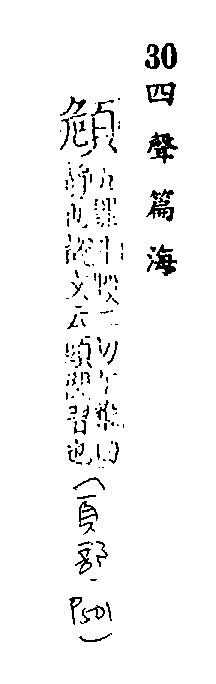 30四聲篇海
頠
五罪牛毀二切
靜也說文云頭閑習也
(頁部.P501)